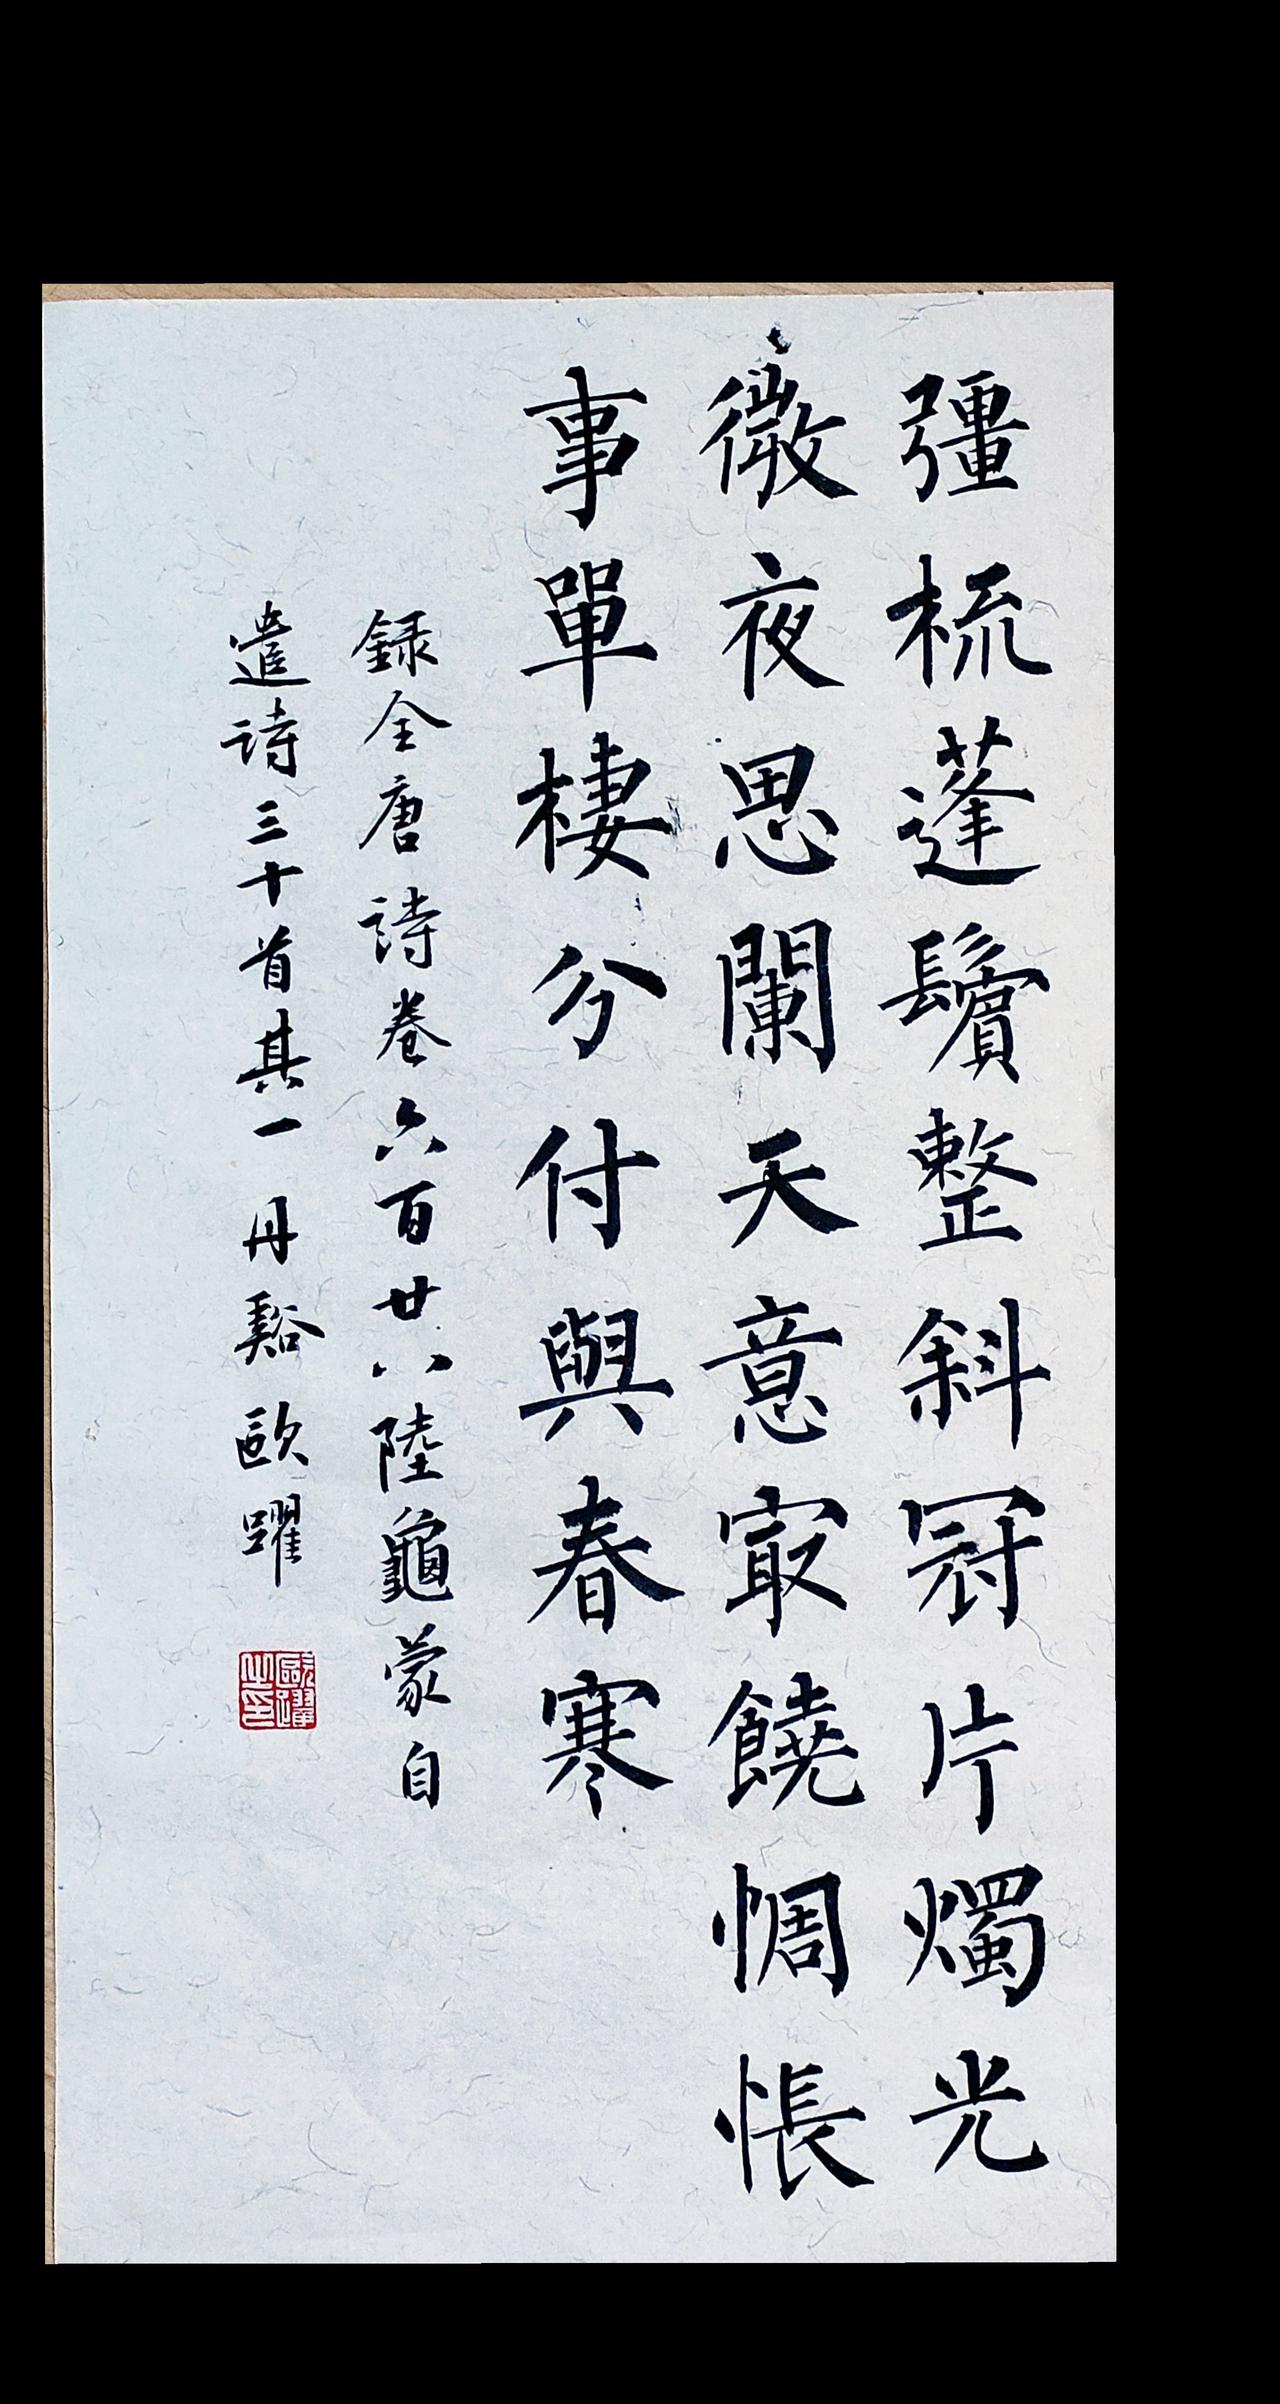 彊梳蓬鬢整斜冠片燭光
微夜思闌天意寂饒惆悵
事單棲分付與春寒
録全唐詩卷六百廿八陸龜蒙自
遣詩三十首其一丹谿歐躍
歐躍之印